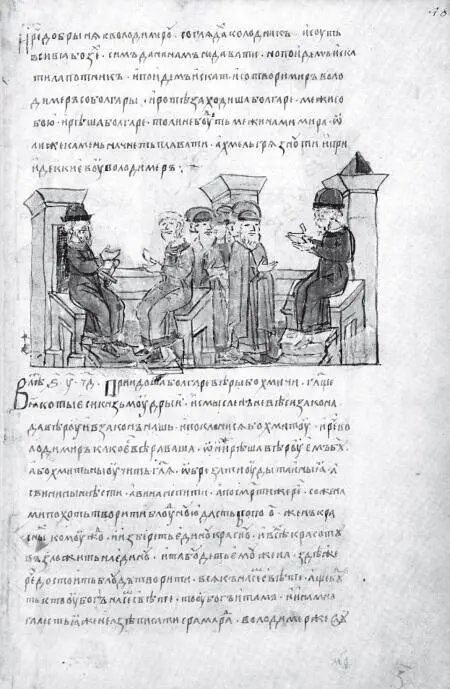 Ре добрынѧ к володимерꙋ · соглѧдах колодникъ · и сꙋть
вси в сапозѣ · сим дани нам не даѧти · но поидем иска
ти лапотникъ · и поидем искат · и сотвори миръ воло
димеръ со болгары · и ротѣ заходиша болгаре · межи со
бою · и рѣша болгаре · толи не бꙋдеть межи нами мира · ѿ
ли же камень начнеть плавати · а хмель грѧзнꙋти · и при
иде киевꙋ володимеръ ·
В лѣт ҂ѕ · у · ч҃д · Приидоша болгаре вѣры бохмичи · гл҃аще
ꙗко ты еси кнзь мꙋдрыи · и смыслен не вѣси закона
да вѣрꙋи в законъ нашь · и поклонисѧ бохмитꙋ · и реч во
лодимиръ како е вѣра ваша · ѡни рѣша вѣрꙋем бг҃ꙋ
а бохмит ны ꙋчить гл҃ѧ · ѡбрезати ꙋды таиныѧ · а
свинины не ѣсти · а вина не пити · а по смрти же реч · со жена
ми похоть творити блꙋднꙋю · дасть по о҃ · женъ кра
сны комꙋжо · изберетъ единꙋ краснꙋ · и всѣх красотꙋ
възложить на единꙋ · и та бꙋдеть емꙋ жена · здѣ же
реч достоить блꙋд творити · всѧк на сем свѣте · аще бꙋ
ть кто ꙋбогъ на сем свѣте · то ꙋбогъ и тамъ · и ина мно
га лесть еѧ же нелзѣ писати срама рад · володимеръ же слꙋ